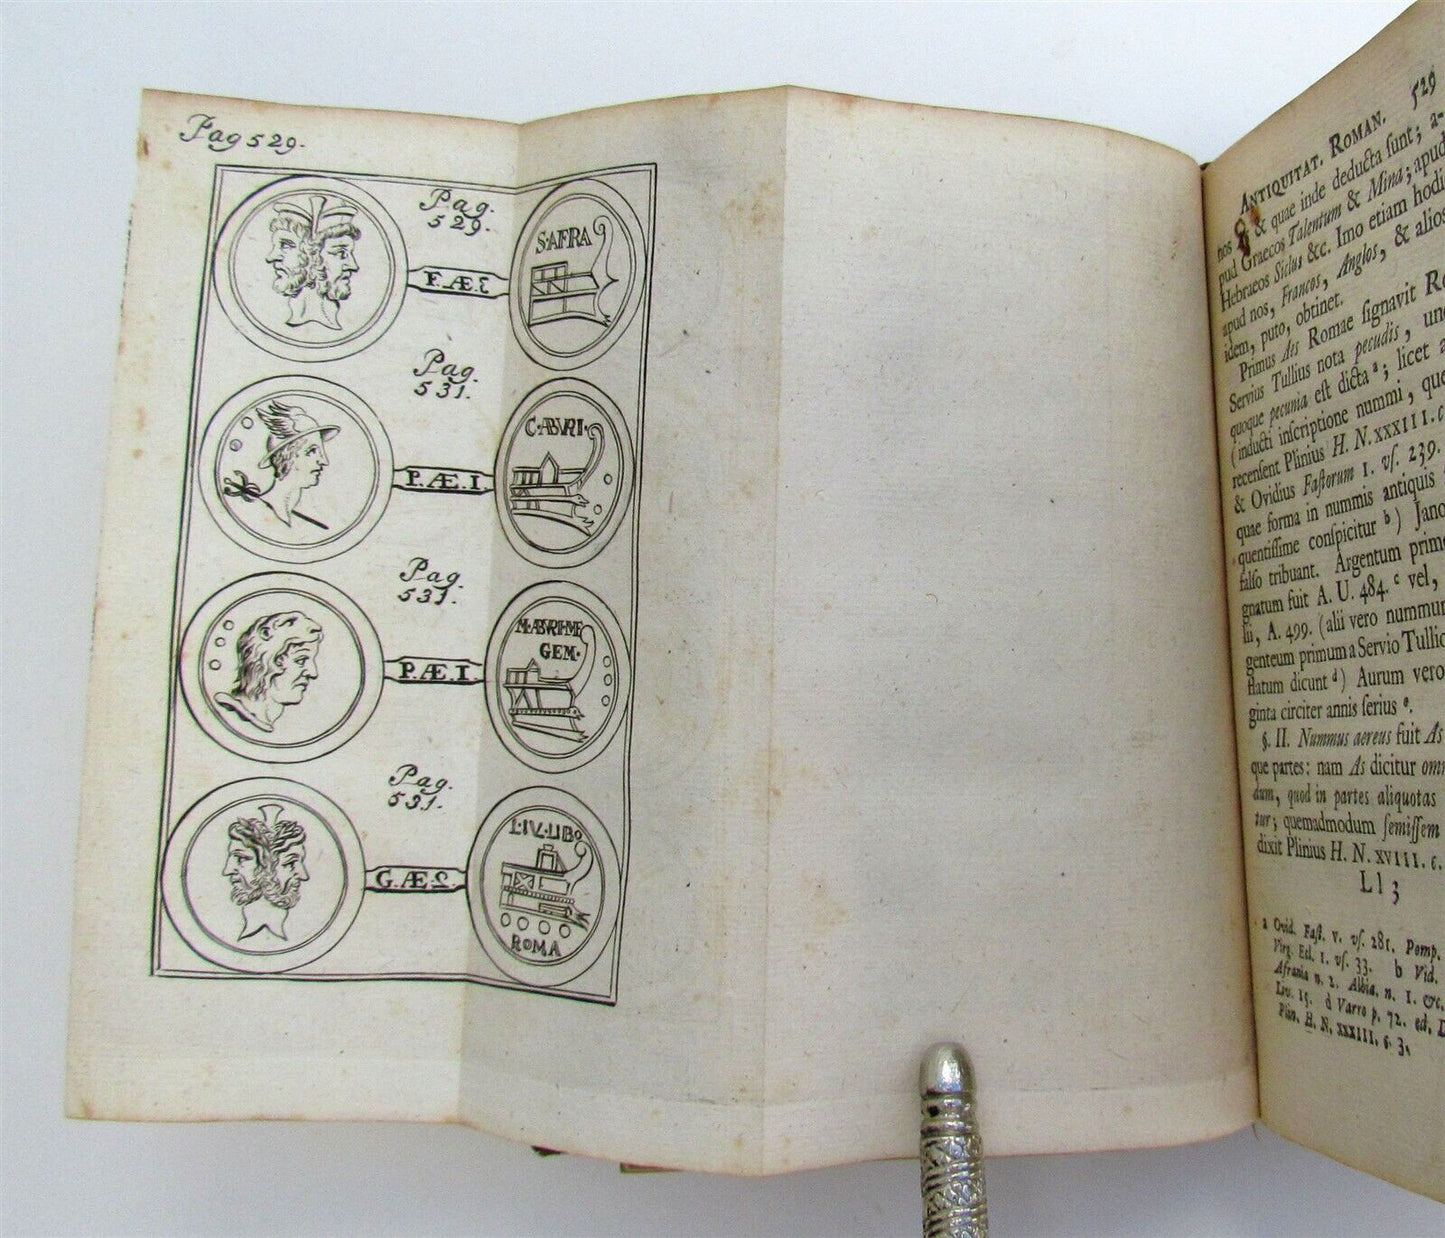 Pag 529.
Pag.
529.
S·AFRA
F.Æ.Ɛ
Pag.
531.
C·ABVRI·
P.Æ.I.
Pag.
531.
M·ABVRI·M·F
GEM·
P.Æ.I
Pag.
531.
L·IVLIBO
G.Æ.2
ROMA
ANTIQUITAT. ROMAN. 529
nos & quae inde deducta sunt; a-
pud Graecos Talentum & Mina; apud
Hebraeos Siclus &c. Imo etiam hodi
apud nos, Francos, Anglos, & alios
idem, puto, obtinet.
Primus Aes Romae signavit
Servius Tullius nota pecudis, un
quoque pecunia est dicta a; licet
(inducti inscriptione nummi, que
recensent Plinius H. N. XXXIII. c
& Ovidius Fastorum 1. vs. 239.
quae forma in nummis antiquis
quentissime conspicitur b) Jano
falso tribuant. Argentum prim
gnatum fuit A. U. 484. c vel,
lii, A. 499. (alii vero nummum
genteum primum a Servio Tullio
flatum dicunt d) Aurum vero
ginta circiter annis serius e.
§. II. Nummus aereus fuit As
que partes: nam As dicitur omn
dum, quod in partes aliquotas
tur; quemadmodum semissem
dixit Plinius H. N. XVIII. c.
Ll 3
a Ovid. Fast. v. vs. 281. Pomp.
Virg. Ecl. 1. vs. 33. b Vid.
Afrania n. 2. Albia. n. 1. &c.
Liv. 15. d Varro p. 72. ed. D
Plin. H. N. XXXIII. c. 3.